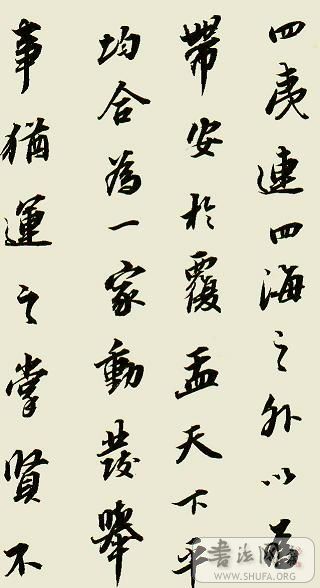 四夷連四海之外以為
帶安於覆盂天下平
均合為一家動發舉
事猶運之掌賢不
書法
WWW.SHUFA.ORG